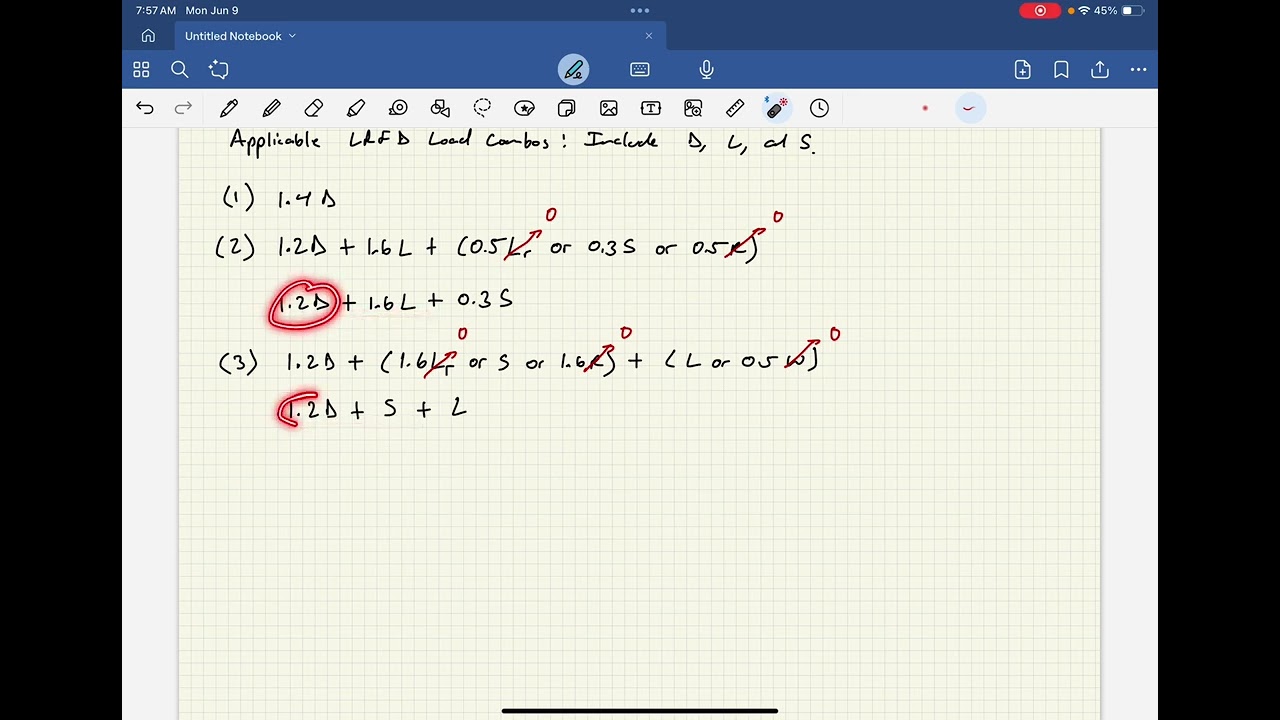 7:57 AM Mon Jun 9
45%
Untitled Notebook
Applicable LRFD Load Combos: Include D, L, and S.
(1) 1.4D
0 0
(2) 1.2D + 1.6L + (0.5Lr or 0.3S or 0.5R)
1.2D + 1.6L + 0.3S
0 0 0
(3) 1.2D + (1.6Lr or S or 1.6R) + (L or 0.5W)
1.2D + S + L